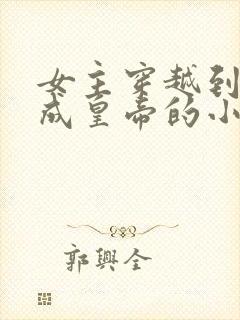 女主穿越到
成皇帝的小
郭興全